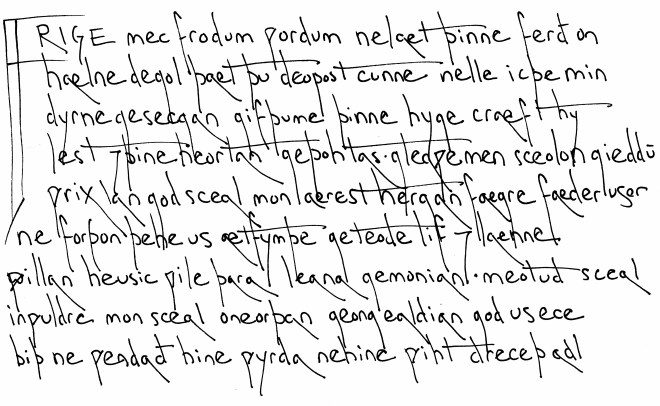 FRIGE mec frodum ƿordum nelæt þinne ferð on
hælne degol þæt þu deopost cunne nelle icþe min
dyrne gesecgan gif þume þinne hyge cræft hy
lest ⁊þine heortan geþohtas. gleaƿe men sceolon gieddū
ƿrixlan god sceal mon ærest hergan fægre fæder user
ne forþon þehe us æt frymþe geteode lif ⁊ lænne
ƿillan heusic ƿile þara leana gemonian. meotud sceal
inƿuldre mon sceal oneorþan geong ealdian god us ece
biþ ne ƿendað hine ƿyrda nehine ƿiht dreceþ adl